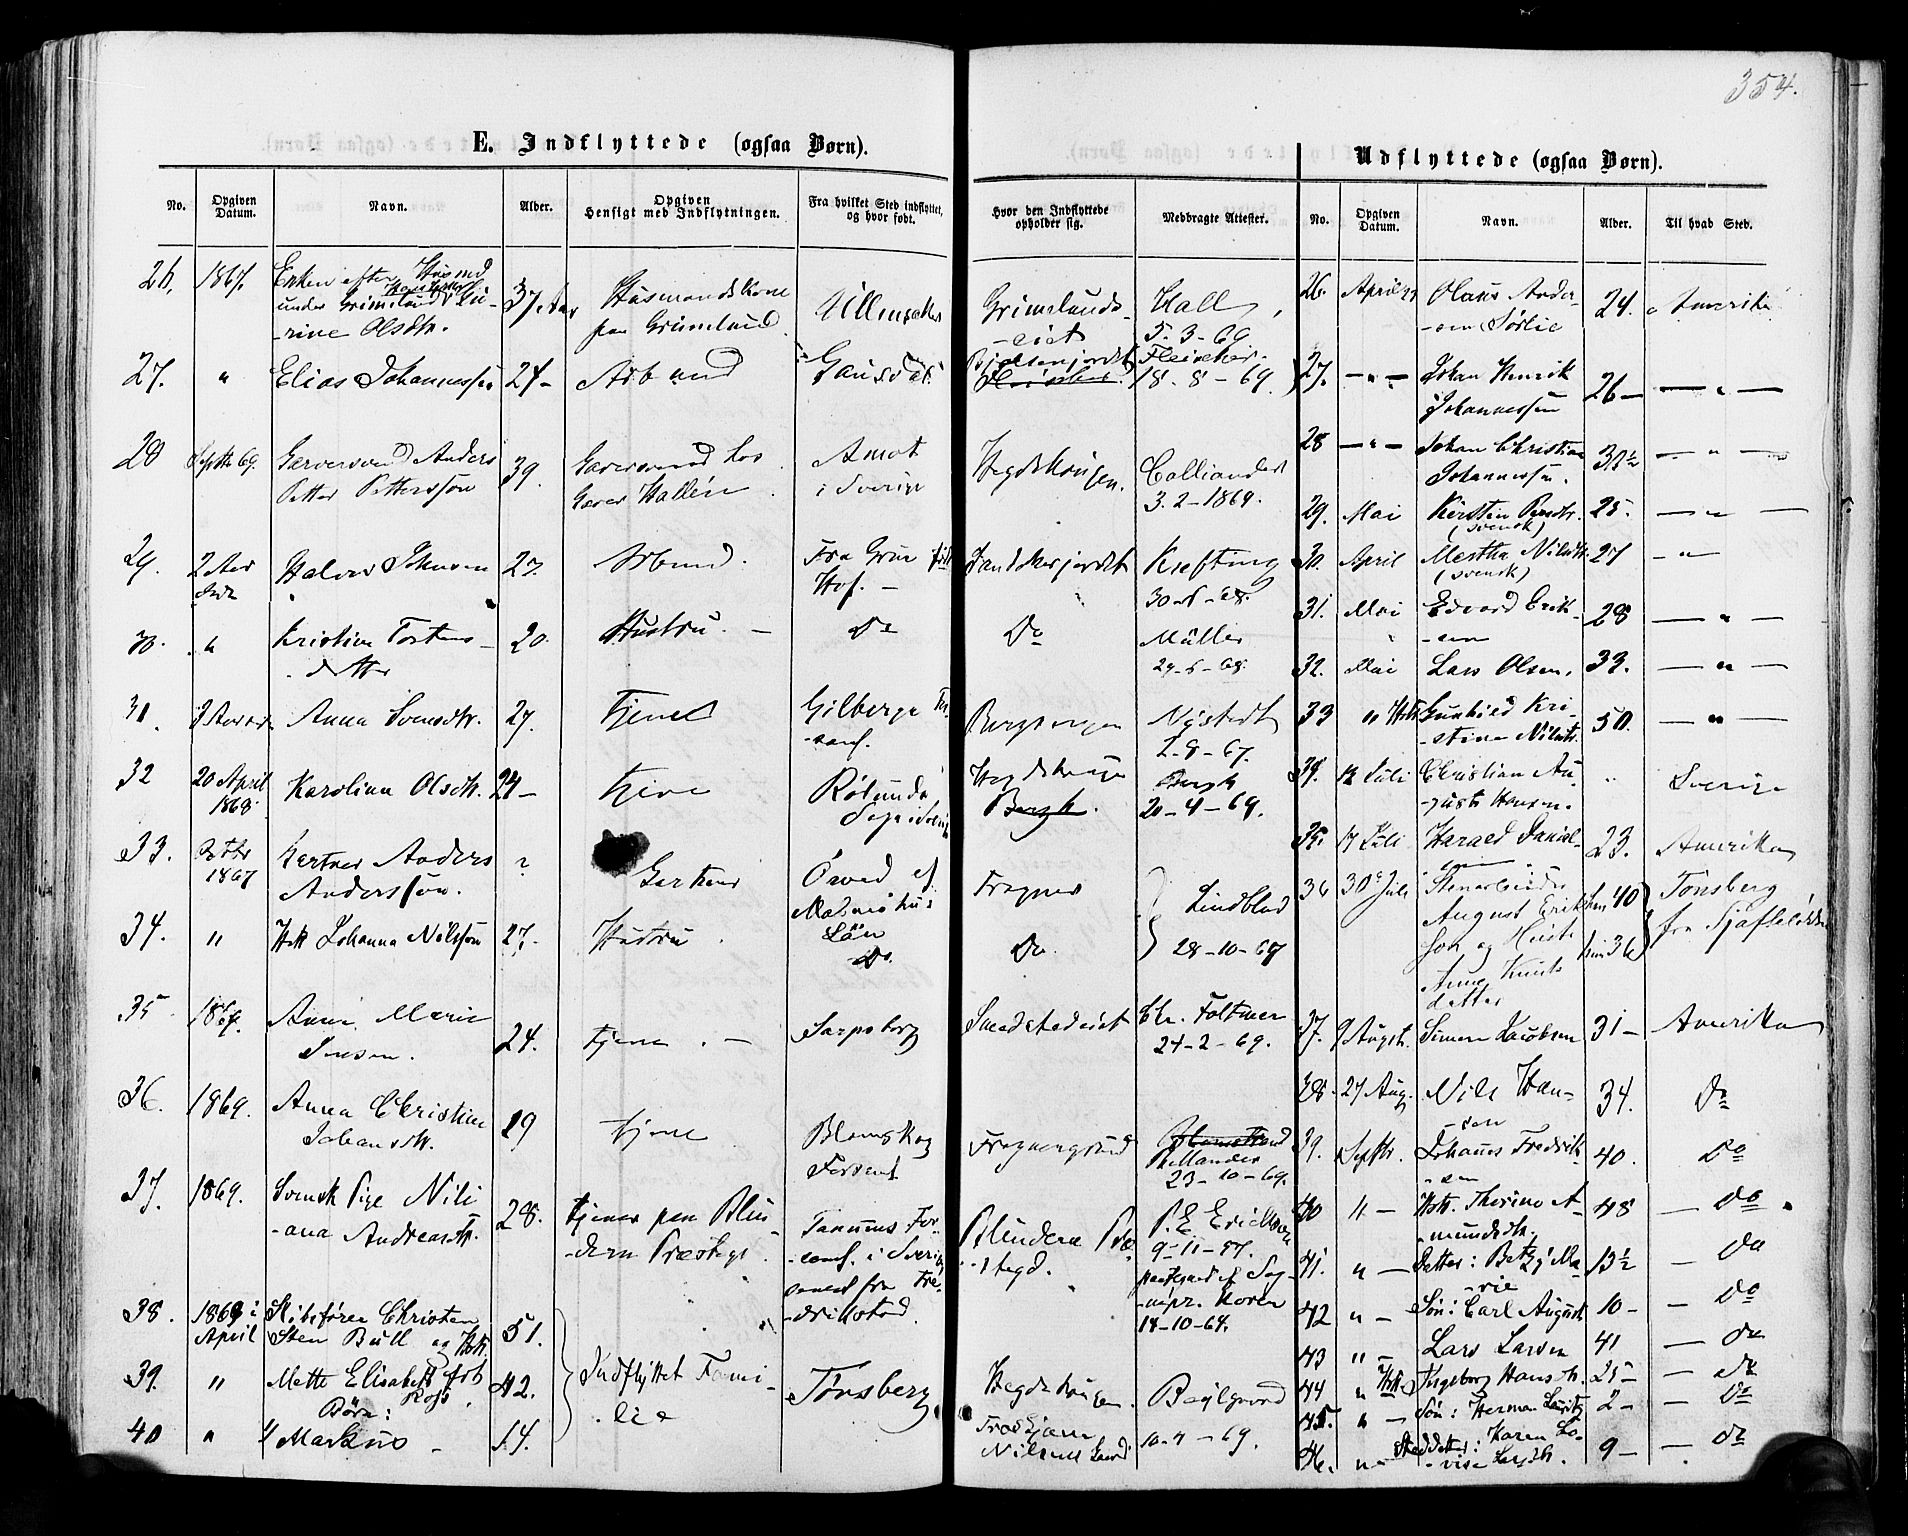 354.
E. Indflyttede (ogsaa Børn).
No. Opgiven Datum. Navn. Alder. Opgiven Hensigt med Indflytningen. Fra hvilket Sted indflyttet, og hvor født. Hvor den Indflyttede opholder sig. Medbragte Attester.
26. 1867. Enken efter Husmd
under Grimelund Lu-
-rine Olsdtr. 37 Aar Husmandskone
paa Grimelund Ullensaker Grimelunds-
-eiet Hall
5-3-69
27. " Elias Johannessen 24- Arb Gausdal Fleischer
18-8-69
28 Septbr 69. Garversvend Anders
Petter Pettersson 39. Garversvend hos
Garver Hallén Amot
i Sverige Hegdehaugen. Calliander
3-2-1869.
29. 2 Aar Halvor Johnsen 27. Arbmd. Fra Grue
Hof. Krefting
30. " Kristine Torstens-
datter 20. Hustru. Do Do Müller
31. Anna Svensdtr. 27. Tjene Gilberga Nystedt
2-8-67.
32 20 April
1868. Karolina Olsdtr. 24- Tjene Hegdehaugen
Bergh. Bergh
20-4-69.
33. 1867 Gartner Anders
Andersson. ? Gartner Öved af
Malmöhus
Län Frogner Lindblad
28-10-67
34. " Hstr Johanna Nilsson 27. Hustru. Do. Do.
35 Anne Marie
Jensen. 24. tjene. - Sarpsborg Chr. Foltmer
24-2-69.
36. 1869. Anna Christine
Johansdtr. 29 tjene Blomskog
Forsaml Frognergrund
23-10-69.
37. 1869. Svensk Pige Nili-
-ana Andreasdtr. 28. tjener paa Blin-
-dern Præstegd. Tanums For-
-saml. i Sverig
Fre-
-drikstad. Blindern Præ
-stegd. P. E. Ericksson
9-11-57.
Koren
18-10-64.
38. 1869 i
April Skibsfører Christen
Sten Bull og Hstr. 51. Indflyttet Fami-
-lie Tønsberg Hegdehaugen.
39. " Mette Elisabeth f
Børn: 42.
40 " 1/ Markus - 14. 10-4-69.
Udflyttede (ogsaa Børn).
No. Opgiven Datum. Navn. Alder. Til hvad Sted.
26. April Olaus Ander-
-sen Sørlie 24. Amerika
27. — " — Johan Henrik
Johannessen 26- — " —
28 — " — Johan Christian
Johannessen. — " —
29. Mai Kirsten
(svensk) 25. — " —
30. April Martha Nilsdtr.
(svensk) 27 — " —
31. Mai Edvard Erik-
-sen 28 — " —
32. Mai Lars Olsen. 33. — " —
33 " Hstr Gunhild Kri-
-stine Nilsdtr. 50. — " —
34. 12 Juli Christian Au-
-gust Hansen. " Sverige
35. 17 Juli Harald Daniel-
-sen 23. Amerika
36 30te Juli Stenarbeider
August Erik
og Hustr
Anne Knuts
datter 40
36 Tønsberg
fra
37. 9 August. Simen Jacobsen 31- Amerika
38. 27 Aug. Nils Han-
-sen 34. Do
39. Septbr. Johannes Fredrik-
-sen 40. Do
40 " — Hstr. Thorine A-
-mundsdtr. 48 — Do
41. " — Datter: Betzy Ma-
-rie 13½ — Do
42 " — Søn: Carl August 10- — Do
43 " — Lars Larsen 41 — Do
44 " Hstr Ingeborg Hansdtr. 25- — Do
45. " — Søn: Herman Lauritz 2- — Do
46. " — Steddatter: Karen Lo-
-vise Larsdtr. 9- — Do